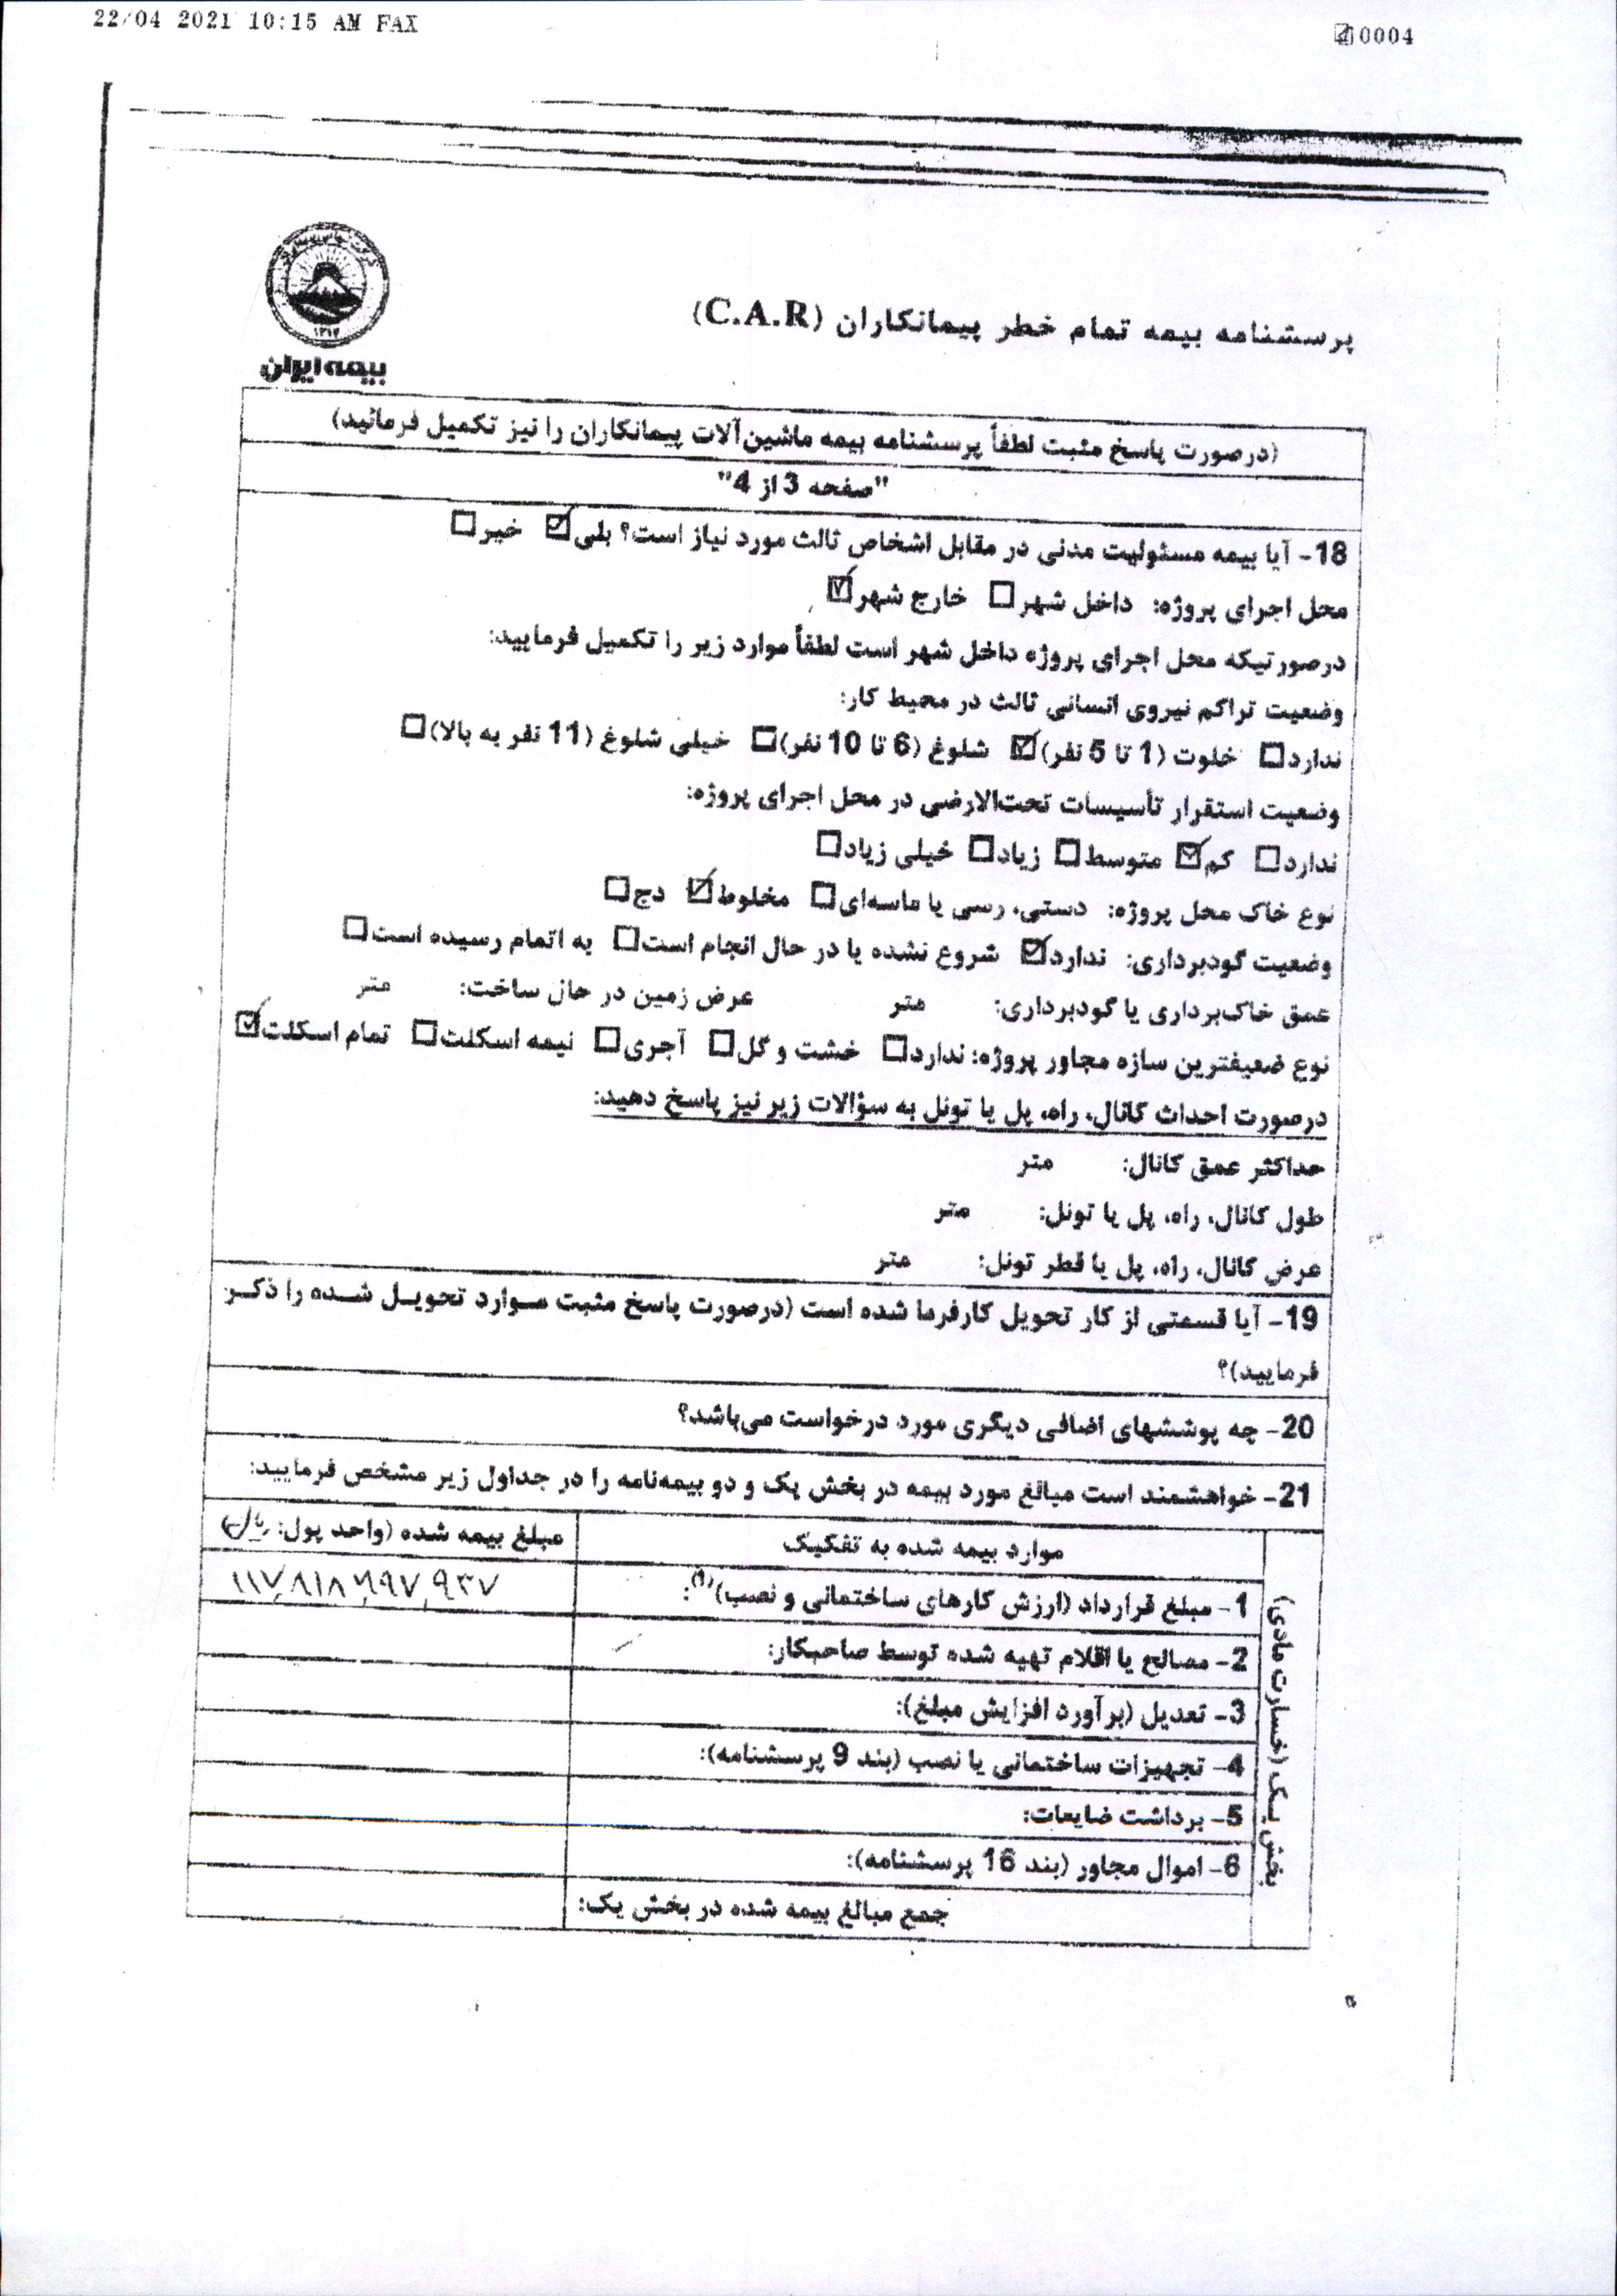 22/04 2021 10:15 AM FAX
0004
۱۳۱۴
بیمه ایران
پرسشنامه بیمه تمام خطر پیمانکاران (C.A.R)
(درصورت پاسخ مثبت لطفاً پرسشنامه بیمه ماشین‌آلات پیمانکاران را نیز تکمیل فرمائید)
"صفحه 3 از 4"
18- آیا بیمه مسئولیت مدنی در مقابل اشخاص ثالث مورد نیاز است؟ بلی☑ خیر☐
محل اجرای پروژه: داخل شهر☐ خارج شهر☑
درصورتیکه محل اجرای پروژه داخل شهر است لطفاً موارد زیر را تکمیل فرمایید:
وضعیت تراکم نیروی انسانی ثالث در محیط کار:
ندارد☐ خلوت (1 تا 5 نفر)☑ شلوغ (6 تا 10 نفر)☐ خیلی شلوغ (11 نفر به بالا)☐
وضعیت استقرار تأسیسات تحت‌الارضی در محل اجرای پروژه:
ندارد☐ کم☑ متوسط☐ زیاد☐ خیلی زیاد☐
نوع خاک محل پروژه: دستی، رسی یا ماسه‌ای☐ مخلوط☑ دج☐
وضعیت گودبرداری: ندارد☑ شروع نشده یا در حال انجام است☐ به اتمام رسیده است☐
عمق خاک‌برداری یا گودبرداری: متر عرض زمین در حال ساخت: متر
نوع ضعیفترین سازه مجاور پروژه: ندارد☐ خشت و گل☐ آجری☐ نیمه اسکلت☐ تمام اسکلت☑
درصورت احداث کانال، راه، پل یا تونل به سؤالات زیر نیز پاسخ دهید:
حداکثر عمق کانال: متر
طول کانال، راه، پل یا تونل: متر
عرض کانال، راه، پل یا قطر تونل: متر
19- آیا قسمتی از کار تحویل کارفرما شده است (درصورت پاسخ مثبت موارد تحویل شده را ذکر
فرمایید)؟
20- چه پوششهای اضافی دیگری مورد درخواست می‌باشد؟
21- خواهشمند است مبالغ مورد بیمه در بخش یک و دو بیمه‌نامه را در جداول زیر مشخص فرمایید:
بخش یک (خسارت مادی)
موارد بیمه شده به تفکیک مبلغ بیمه شده (واحد پول: ریال)
1- مبلغ قرارداد (ارزش کارهای ساختمانی و نصب)(۱): ۱۱۷,۸۱۸,۶۹۷,۹۳۷
2- مصالح یا اقلام تهیه شده توسط صاحبکار:
3- تعدیل (برآورد افزایش مبلغ):
4- تجهیزات ساختمانی یا نصب (بند 9 پرسشنامه):
5- برداشت ضایعات:
6- اموال مجاور (بند 16 پرسشنامه):
جمع مبالغ بیمه شده در بخش یک: